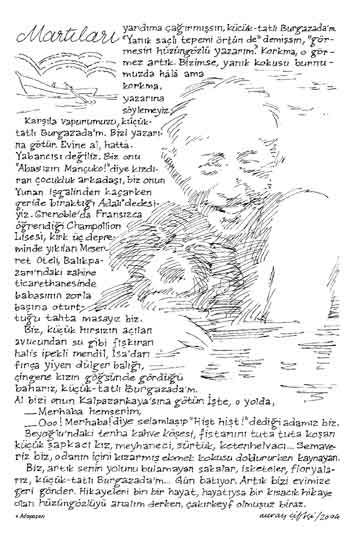 Martıları yardıma çağırmışsın, küçük-tatlı Burgazada'm.
"Yanık saçlı tepemi örtün de" demişsin, "gör-
mesin hüzüngözlü yazarım". Korkma, o gör-
mez artık. Bizimse, yanık kokusu burnu-
muzda hâlâ ama
korkma,
yazarına
söylemeyiz.
Karşıla vapurumuzu, küçük-
tatlı Burgazada'm. Bizi yazarı-
na götür. Evine al, hatta.
Yabancısı değiliz. Biz onu
"Abasızın Mançuko!" diye kızdı-
ran çocukluk arkadaşı, biz onun
Yunan işgalinden kaçarken
geride bıraktığı Adalı* dedesi-
yiz. Grenoble'da Fransızca
öğrendiği Champollion
Lisesi, kırk üç depre-
minde yıkılan Meser-
ret Oteli, Balıkpa-
zarı'ndaki zahire
ticarethanesinde
babasının zorla
başına oturt-
tuğu tahta masayız biz.
Biz, küçük hırsızın açılan
avucundan su gibi fışkıran
halis ipekli mendil, İsa'dan
fırça yiyen dülger balığı,
çingene kızın göğsünde gördüğü
baharız, küçük-tatlı Burgazada'm.
Al bizi onun Kalpazankaya'sına götür. İşte, o yolda,
__Merhaba hemşerim,
__Ooo! Merhaba! diye selamlaşıp "Hişt hişt!" dediği adamız biz.
Beyoğlu'ndaki tenha kahve köşesi, fistanını tuta tuta koşan
küçük şapkacı kız, meyhaneci, sürtük, ketenhelvacı... Semave-
riz biz, odanın içini kızarmış ekmek kokusu doldururken kaynayan.
Biz, artık senin yolunu bulamayan sakalar, isketeler, florya-
rız, küçük-tatlı Burgazada'm... Gün batıyor. Artık bizi evimize
geri gönder. Hikâyeleri bin bir hayat, hayatıysa bir kısacık hikâye
olan hüzüngözlüyü analım derken, çakırkeyf olmuşuz biraz.
* Adapazarı
2004